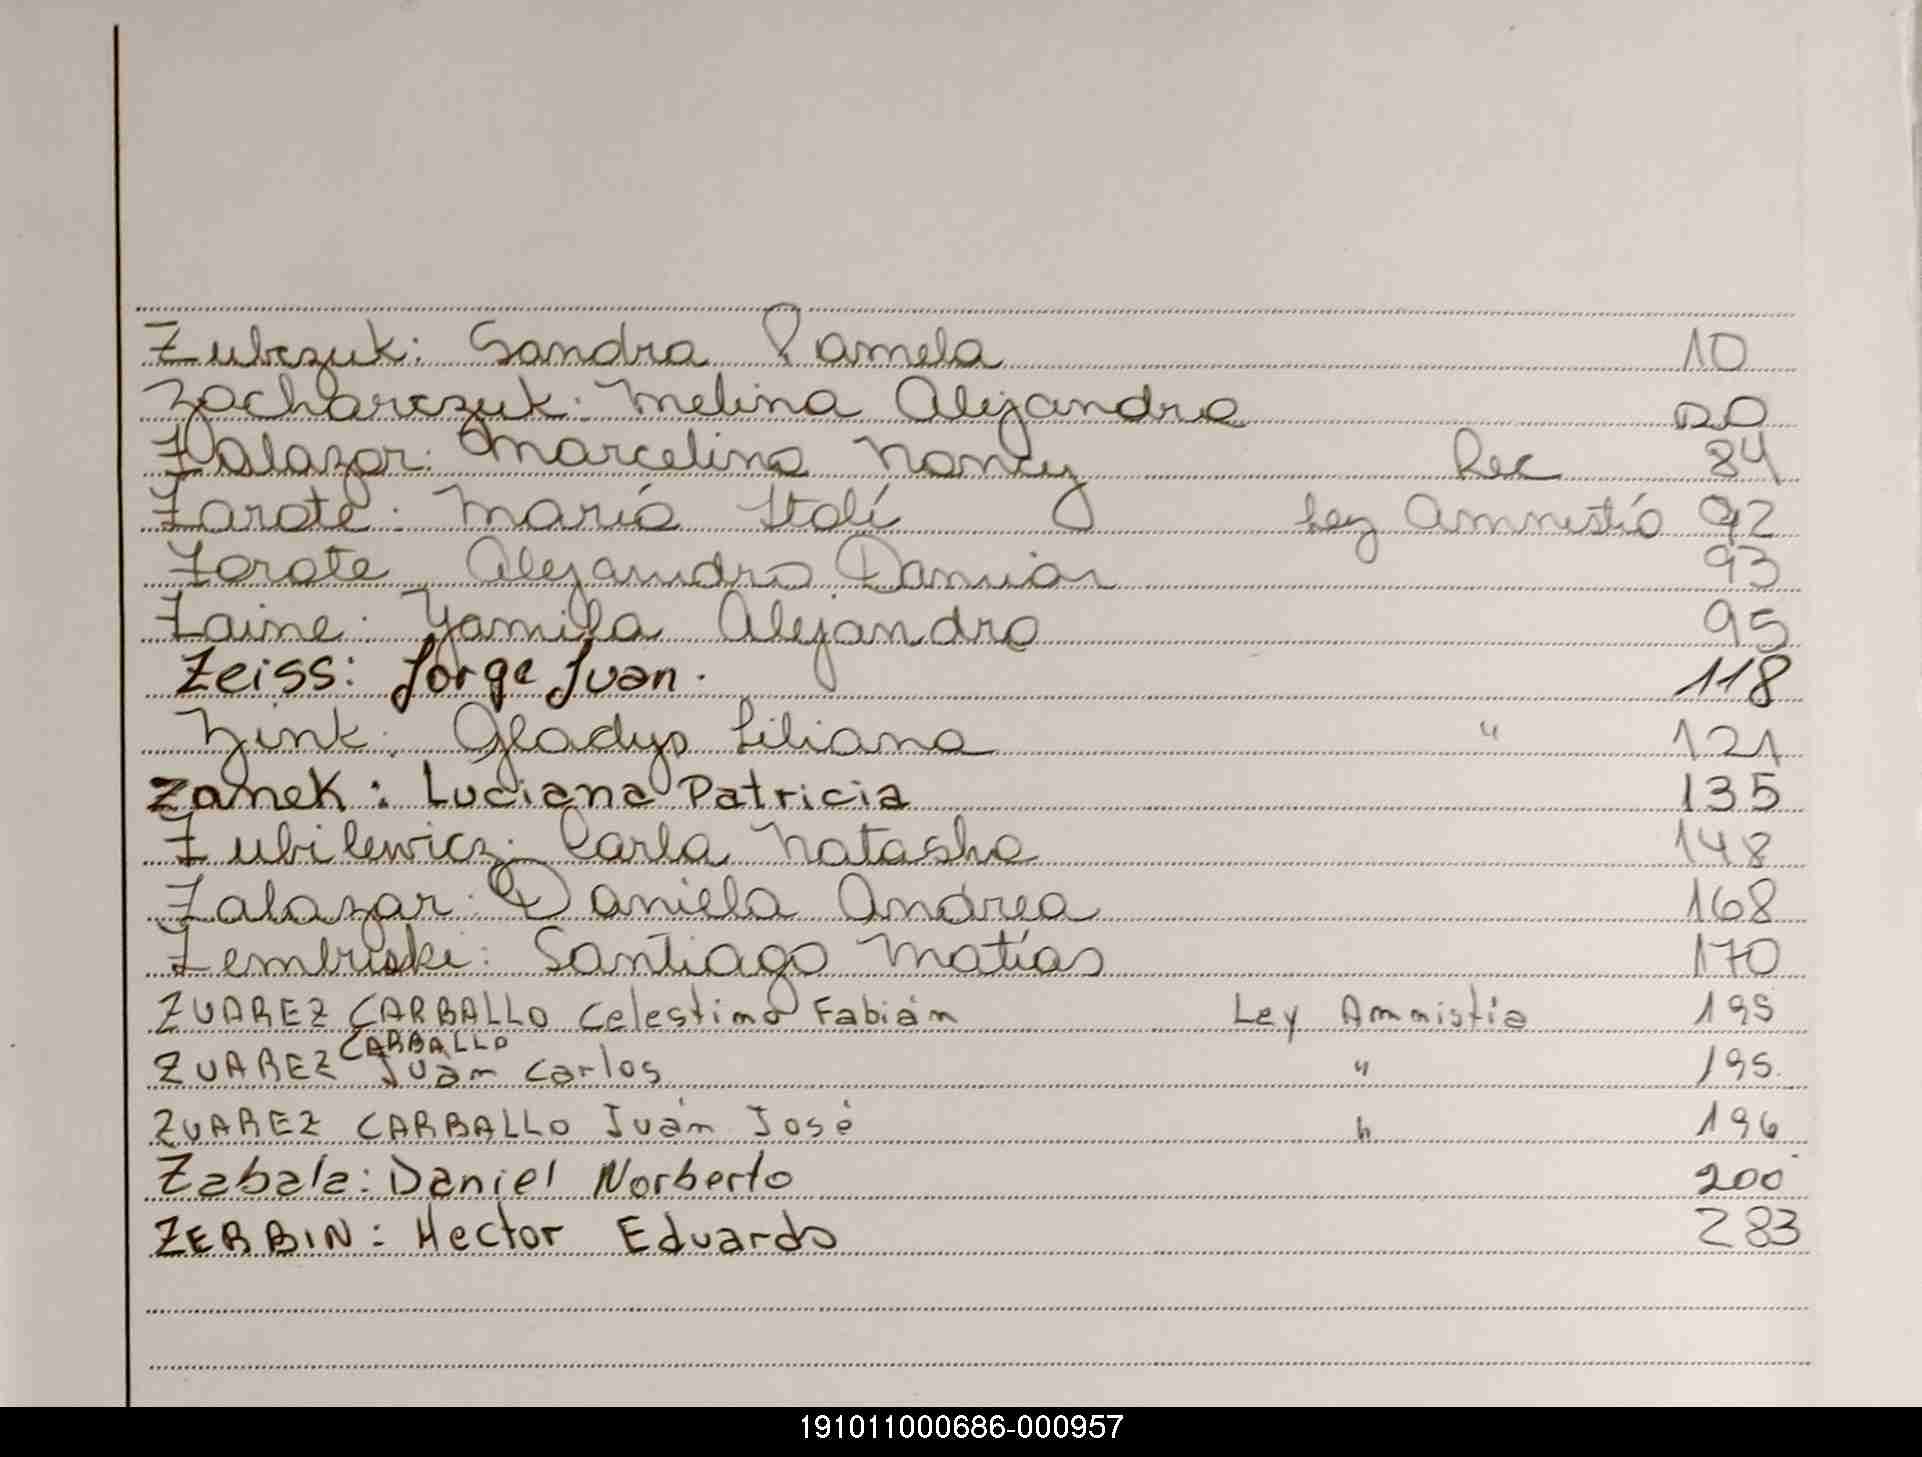 Zubczuk: Sandra Pamela 10
Zacharczuk: Melina Alejandra 20
Zalazar: Marcelina Nancy Rec 84
Zarate: María Itatí Ley Amnistía 92
Zarate Alejandro Damián 93
Zaine: Yamila Alejandra 95
Zeiss: Jorge Juan. 118
Zink: Gladys Liliana " 121
Zanek: Luciana Patricia 135
Zubilewicz: Carla Natasha 148
Zalazar: Daniela Andrea 168
Zembriski: Santiago Matías 170
ZUAREZ CARBALLO Celestino Fabián Ley Amnistía 195
ZUAREZ CARBALLO Juan Carlos " 195
ZUAREZ CARBALLO Juan José " 196
Zabala: Daniel Norberto 200
ZERBIN: Hector Eduardo 283
191011000686-000957